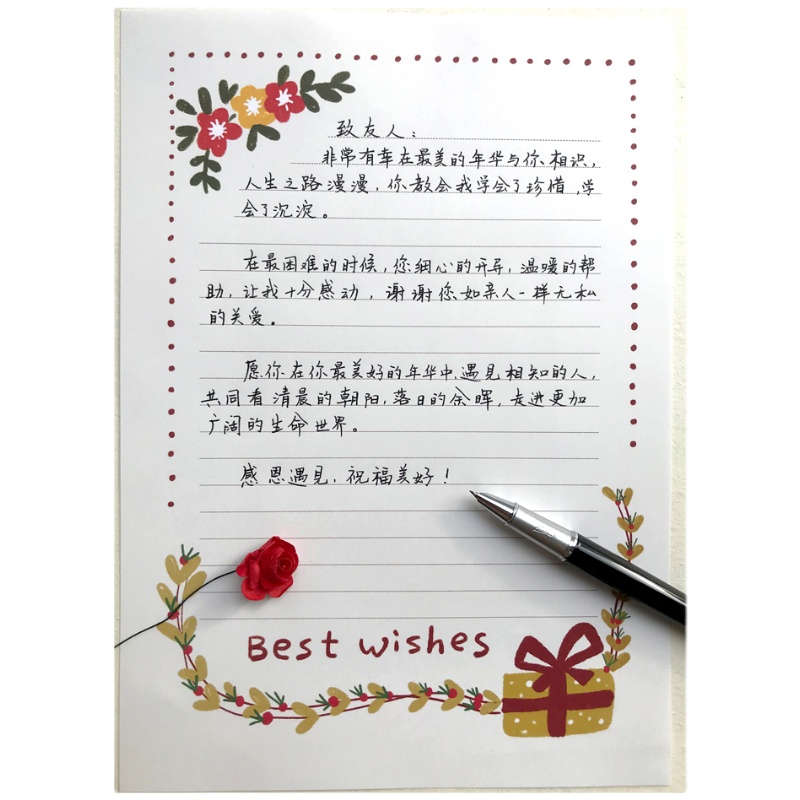 致友人：
非常有幸在最美的年华与你相识，
人生之路漫漫，你教会我学会了珍惜，学
会了沉淀。
在最困难的时候，您细心的开导，温暖的帮
助，让我十分感动，谢谢您如亲人一样无私
的关爱。
愿你在你最美好的年华中遇见相知的人，
共同看清晨的朝阳，落日的余晖，走进更加
广阔的生命世界。
感恩遇见，祝福美好！
Best wishes